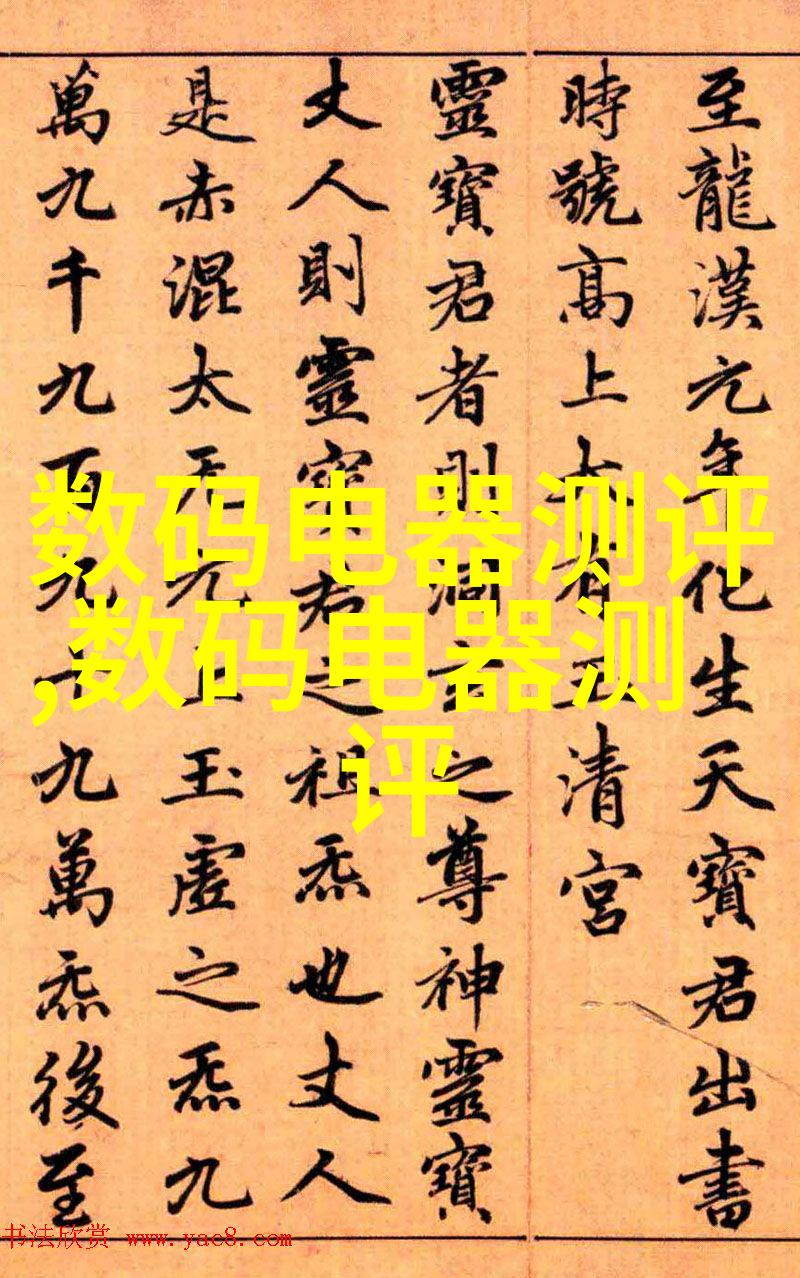 至龍漢元年化生天寶君出書
時號高上大有玉清宮
靈寶君者則洞玄之尊神靈寶
丈人則靈寶君之祖炁也丈人
是赤混太无元上玉虛之炁九
萬九千九百九十九萬炁後至
数码电器测评
,数码电器测
评
书法欣赏 www.yac8.com